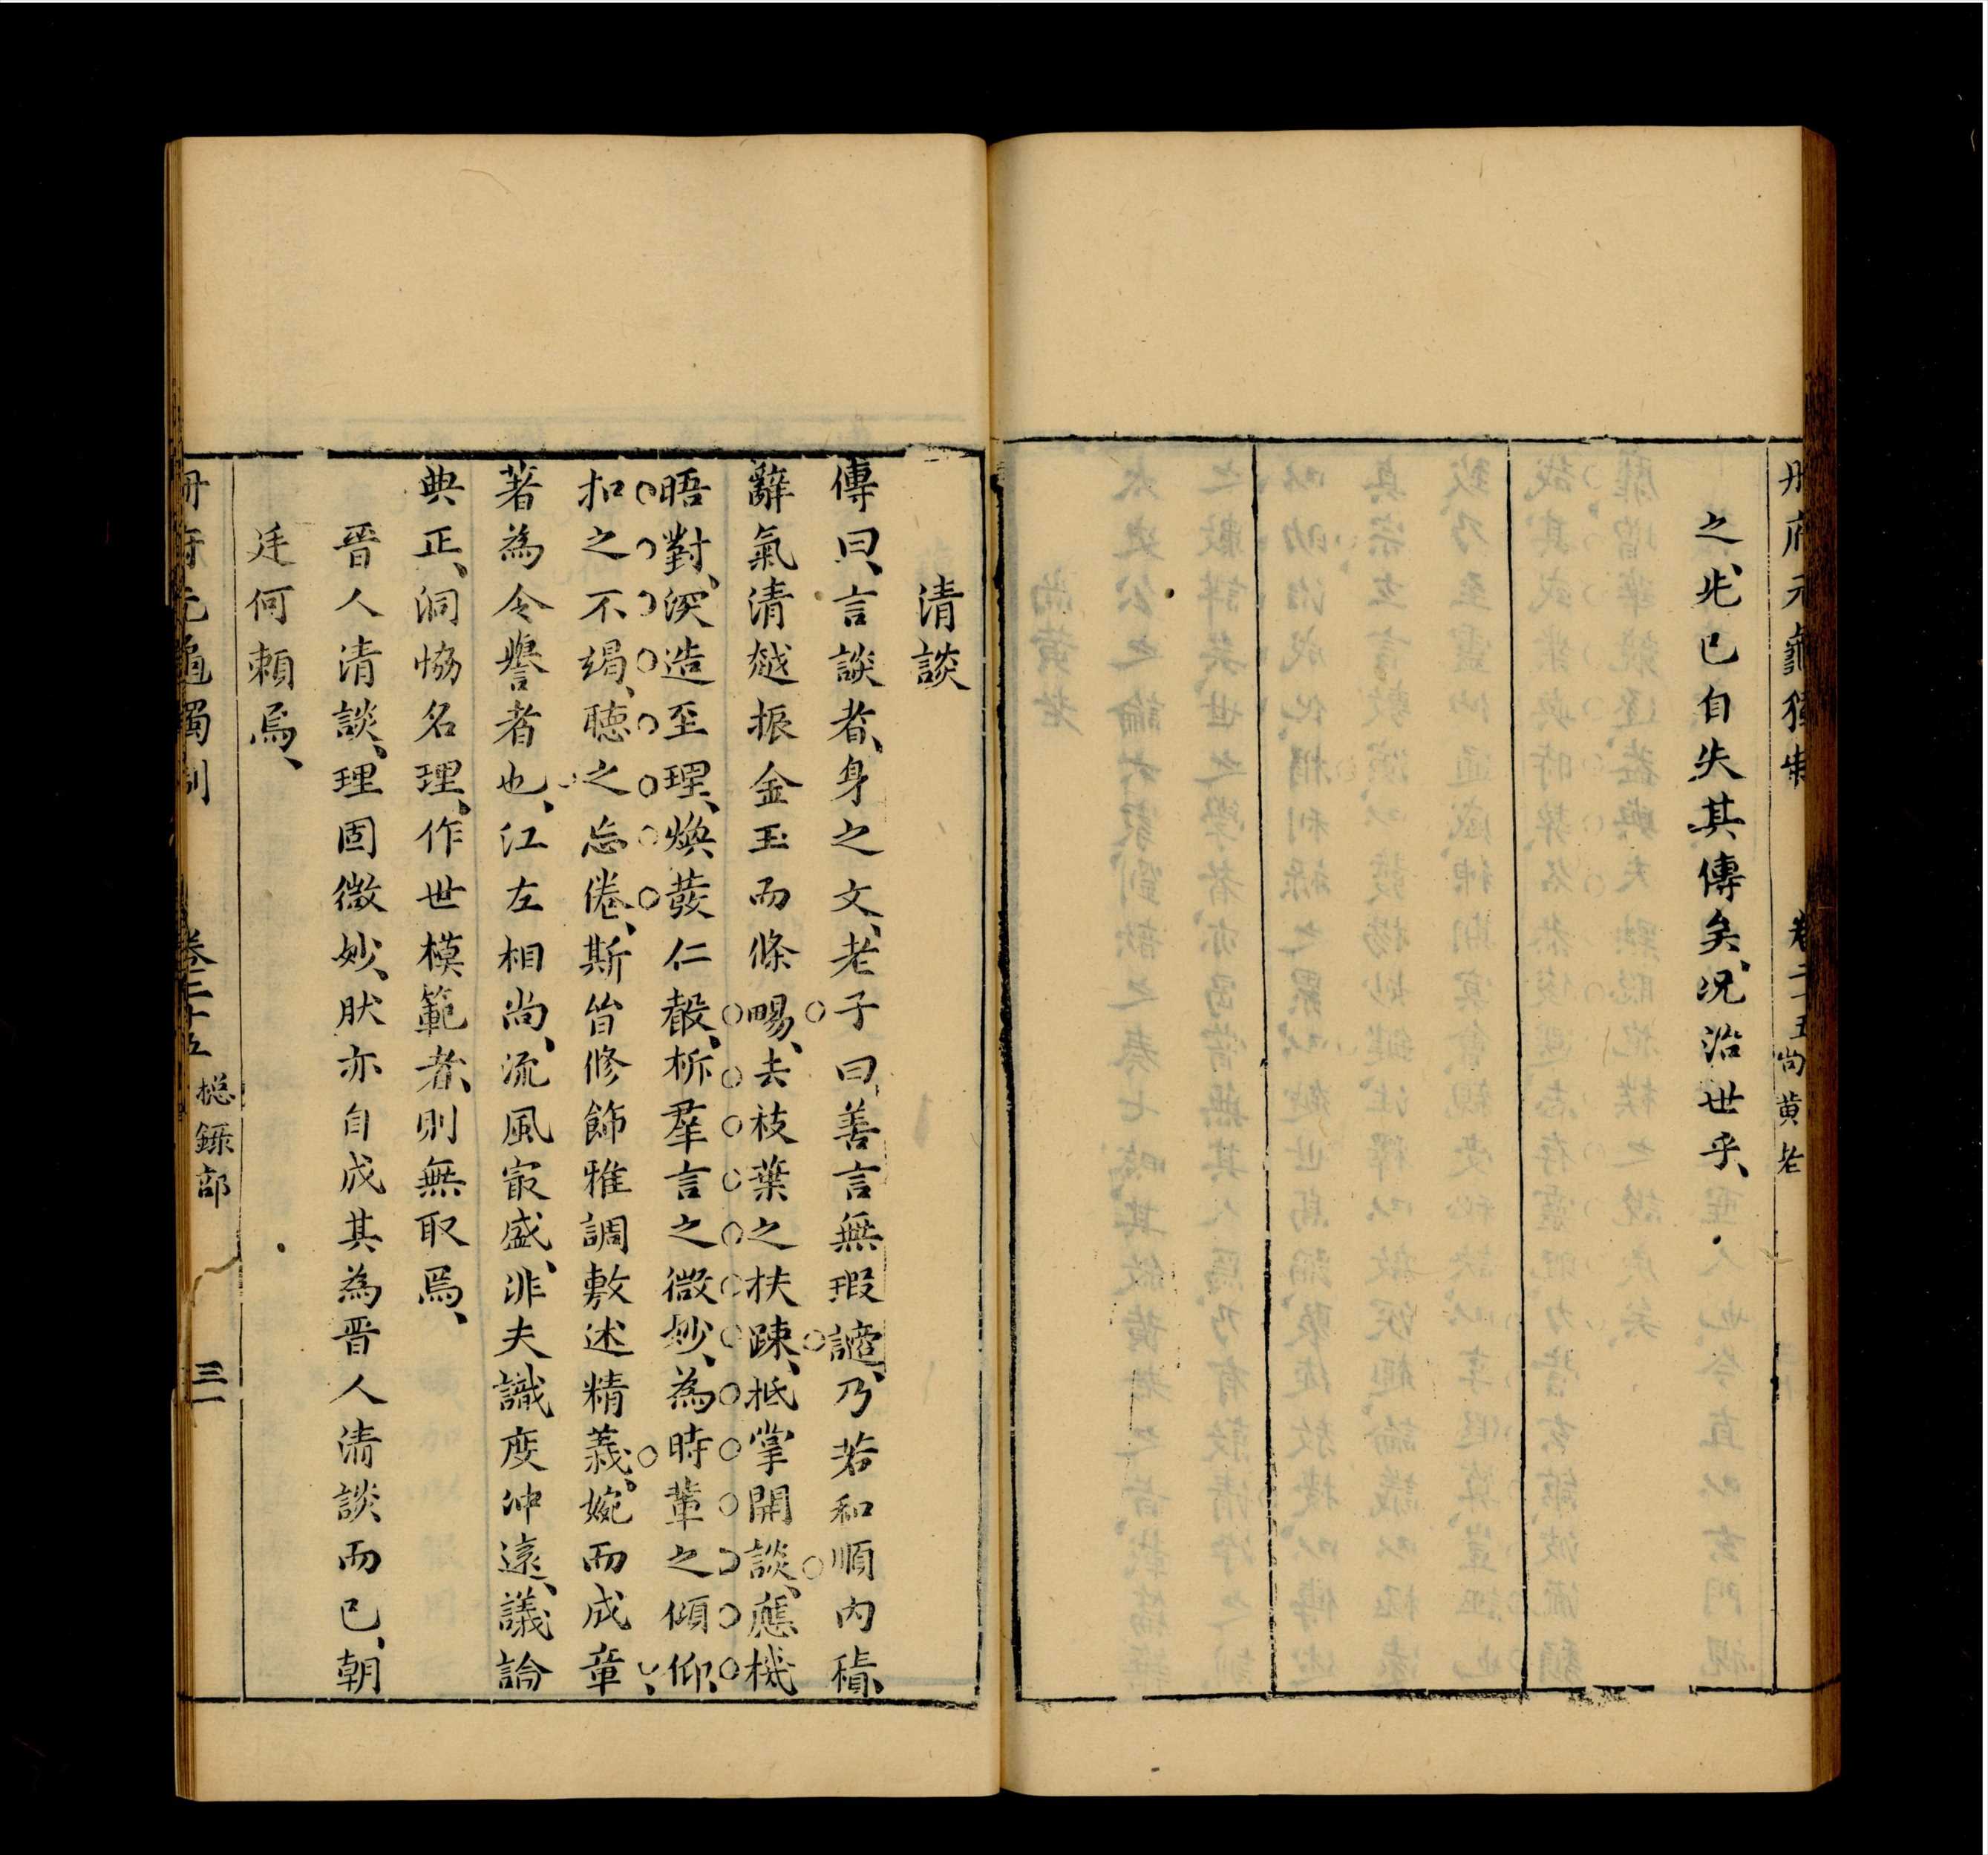 册府元龜獨制 卷二十五 尚黃老
之先已自失其傳矣、况治世乎、
清談
傳曰、言談者、身之文、老子曰善言無瑕讁、乃若和順內積、
辭氣清越振金玉而條暢、去枝葉之扶踈、抵掌開談、應機
晤對、深造至理、煥發仁聲、析羣言之微妙、為時輩之傾仰、
扣之不竭、聽之忘倦、斯皆修飾雅調敷述精義、婉而成章、
著為令譽者也、江左相尚、流風㝡盛、非夫識度沖遠、議論
典正、洞恊名理、作世模範者、則無取焉、
晉人清談、理固微妙、肰亦自成其為晉人清談而已、朝
廷何頼焉、
册府元龜獨制 卷二十五 摠錄部 三一